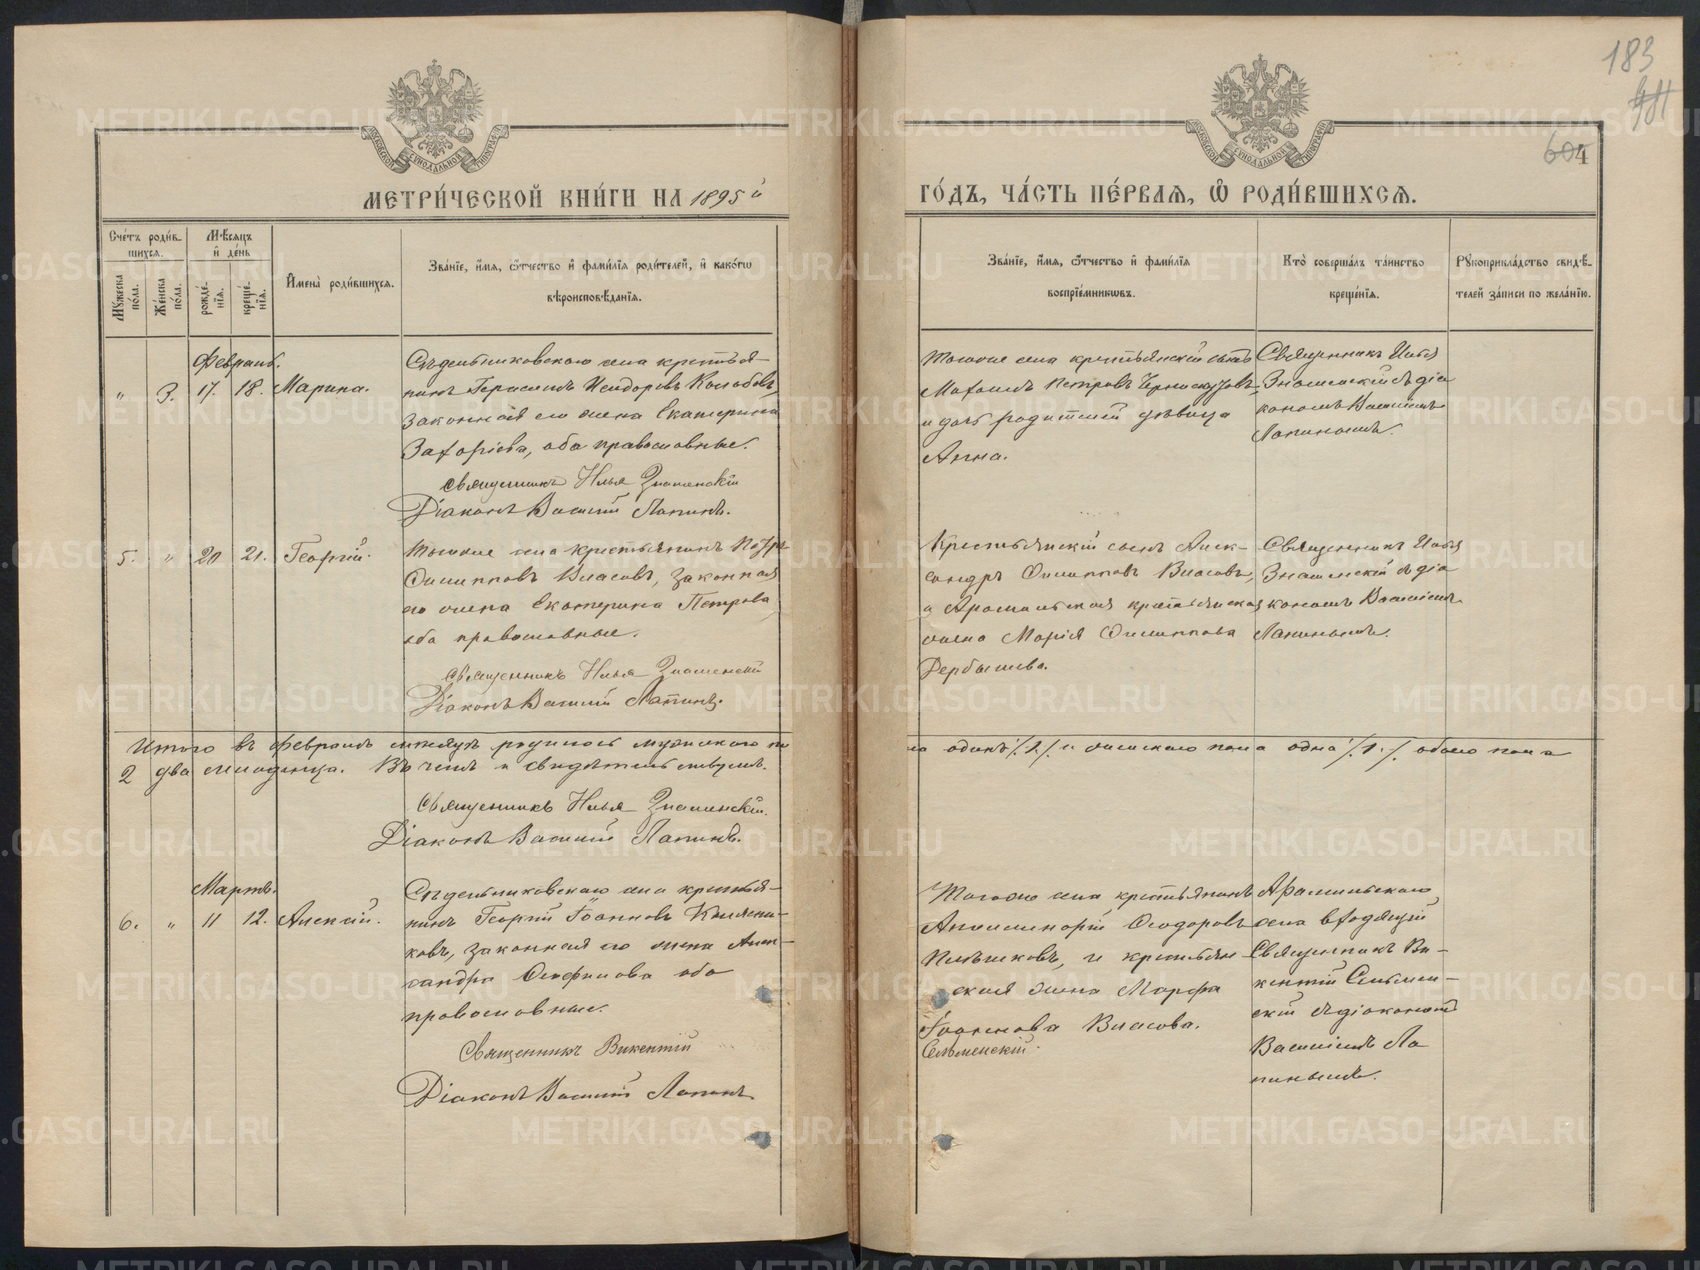 183
481
604
МОСКОВСКОЙ СѴНОДАЛЬНОЙ ТИПОГРАФІИ
МОСКОВСКОЙ СѴНОДАЛЬНОЙ ТИПОГРАФІИ
МЕТРИ́ЧЕСКОЙ КНИ́ГИ НА 1895й
ГО́ДЪ, ЧА́СТЬ ПЕ́РВАѦ, Ѡ҆ РОДИ́ВШИХСѦ.
Сче́тъ роди́в-
шихсѧ.
Мꙋ́жеска по́ла.
Же́нска по́ла.
Мѣ́сѧцъ
и҆ де́нь
рожде́-
нїѧ.
креще́-
нїѧ.
И҆мена̀ роди́вшихсѧ.
Зва́нїе, и҆́мѧ, ѻ҆́тчество и҆ фами́лїѧ роди́телей, и҆ како́гѡ
вѣроисповѣ́данїѧ.
Зва́нїе, и҆́мѧ, ѻ҆́тчество и҆ фами́лїѧ
воспрїе́мникѡвъ.
Кто̀ соверша́лъ та́инство
креще́нїѧ.
Рꙋкоприкла́дство свидѣ́-
телей за́писи по жела́нїю.
Февраль.
" 3. 17. 18. Марина.
Сѣдельниковскаго села крестья-
нинъ Герасимъ Исидоровъ Колобовъ,
законная его жена Екатерина
Захаріева, оба православные.
Священникъ Илья Знаменскій
Діаконъ Василій Лапинъ.
Тогоже села крестьянскій сынъ
Матвей Петровъ Черноскутовъ,
и дочь родителей девица
Анна.
Священникъ Илья
Знаменскій съ діа
кономъ Василіемъ
Лапинымъ.
5. " 20 21. Георгій.
Тогоже села крестьянинъ Петръ
Филипповъ Власовъ, законная
его жена Екатерина Петрова,
оба православные.
Священникъ Илья Знаменскій
Діаконъ Василій Лапинъ.
Крестьянскій сынъ Алек-
сандръ Филипповъ Власовъ,
и Арамильская крестьянская
жена Марія Филиппова
Дербышева.
Священникъ Илья
Знаменскій съ діа
кономъ Василіемъ
Лапинымъ.
Итого въ Февралѣ месяцѣ родилось мужескаго по
ла одинъ /1./ и женскаго пола одна /1./ обоего пола
2 два младенца. Въ чемъ и свидѣтельствуемъ.
Священникъ Илья Знаменскій.
Діаконъ Василій Лапинъ.
Мартъ.
6. " 11 12. Алексей.
Сѣдельниковскаго села крестья-
нинъ Георгій Іоанновъ
ковъ, законная его жена Алек-
сандра оба
православные.
Священникъ Викентій
Сельменскій.
Діаконъ Василій Лапинъ.
Тогоже села крестьянинъ
Аполлинарій Ѳеодоровъ
и крестьян-
ская жена Марфа
Іоаннова Власова.
Арамильскаго
села
Священникъ Ви-
кентій Сельмен-
скій съ діакономъ
Василіемъ Ла
пинымъ.
METRIKI.GASO-URAL.RU